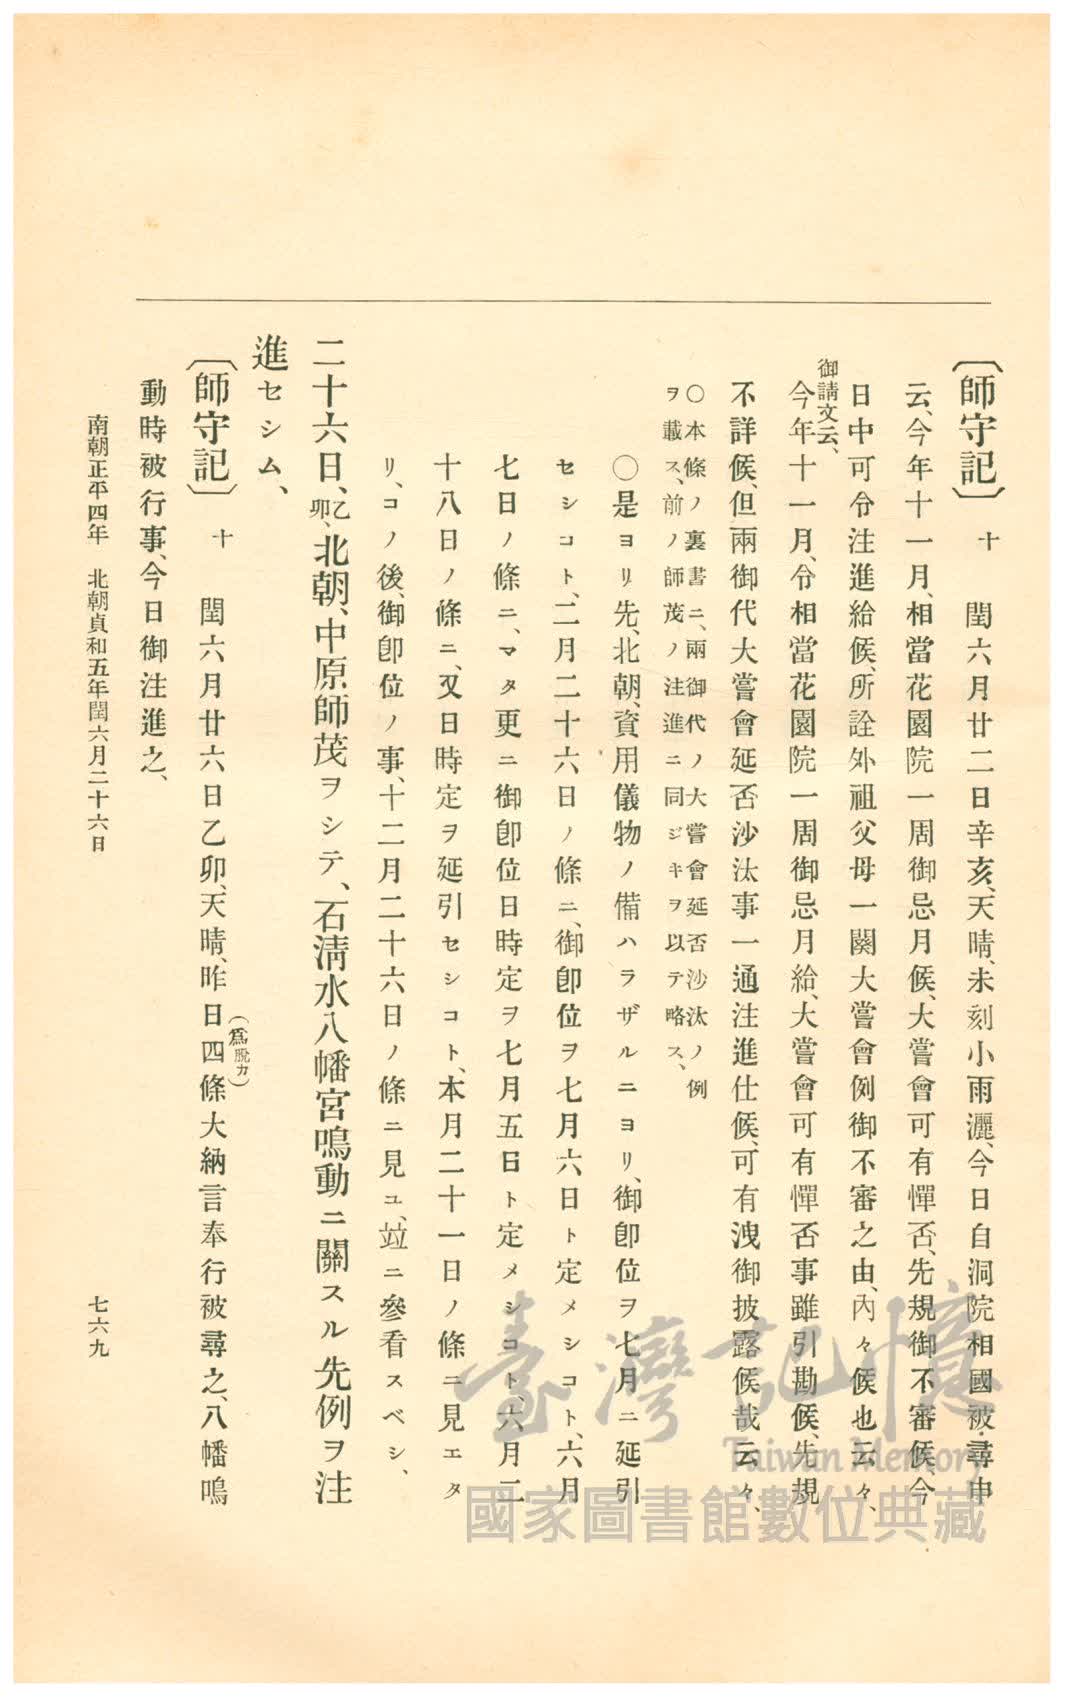 〔師守記〕 十 閏六月廿二日辛亥、天晴、未刻小雨灑、今日自洞院相國被尋申
云、今年十一月、相當花園院一周御忌月候、大嘗會可有憚否、先規御不審候、今
日中可令注進給候、所詮外祖父母一闋大嘗會例御不審之由、內々候也云々、
御請文云、
今年十一月、令相當花園院一周御忌月給、大嘗會可有憚否事雖引勘候、先規
不詳候、但兩御代大嘗會延否沙汰事一通注進仕候、可有洩御披露候哉云々、
〇本條ノ裏書ニ、兩御代ノ大嘗會延否沙汰ノ例
ヲ載ス、前ノ師茂ノ注進ニ同ジキヲ以テ略ス、
〇是ヨリ先、北朝、資用儀物ノ備ハラザルニヨリ、御卽位ヲ七月ニ延引
セシコト、二月二十六日ノ條ニ、御卽位ヲ七月六日ト定メシコト、六月
七日ノ條ニ、マタ更ニ御卽位日時定ヲ七月五日ト定メシコト、六月二
十八日ノ條ニ、又日時定ヲ延引セシコト、本月二十一日ノ條ニ見エタ
リ、コノ後、御卽位ノ事、十二月二十六日ノ條ニ見ユ、竝ニ參看スベシ、
二十六日、乙卯、北朝、中原師茂ヲシテ、石淸水八幡宮鳴動ニ關スル先例ヲ注
進セシム、
〔師守記〕 十 閏六月廿六日乙卯、天晴、昨日四條大納言奉行被尋之、八幡鳴
(爲脫カ)
動時被行事、今日御注進之、
南朝正平四年 北朝貞和五年閏六月二十六日
七六九
臺灣記憶
Taiwan Memory
國家圖書館數位典藏